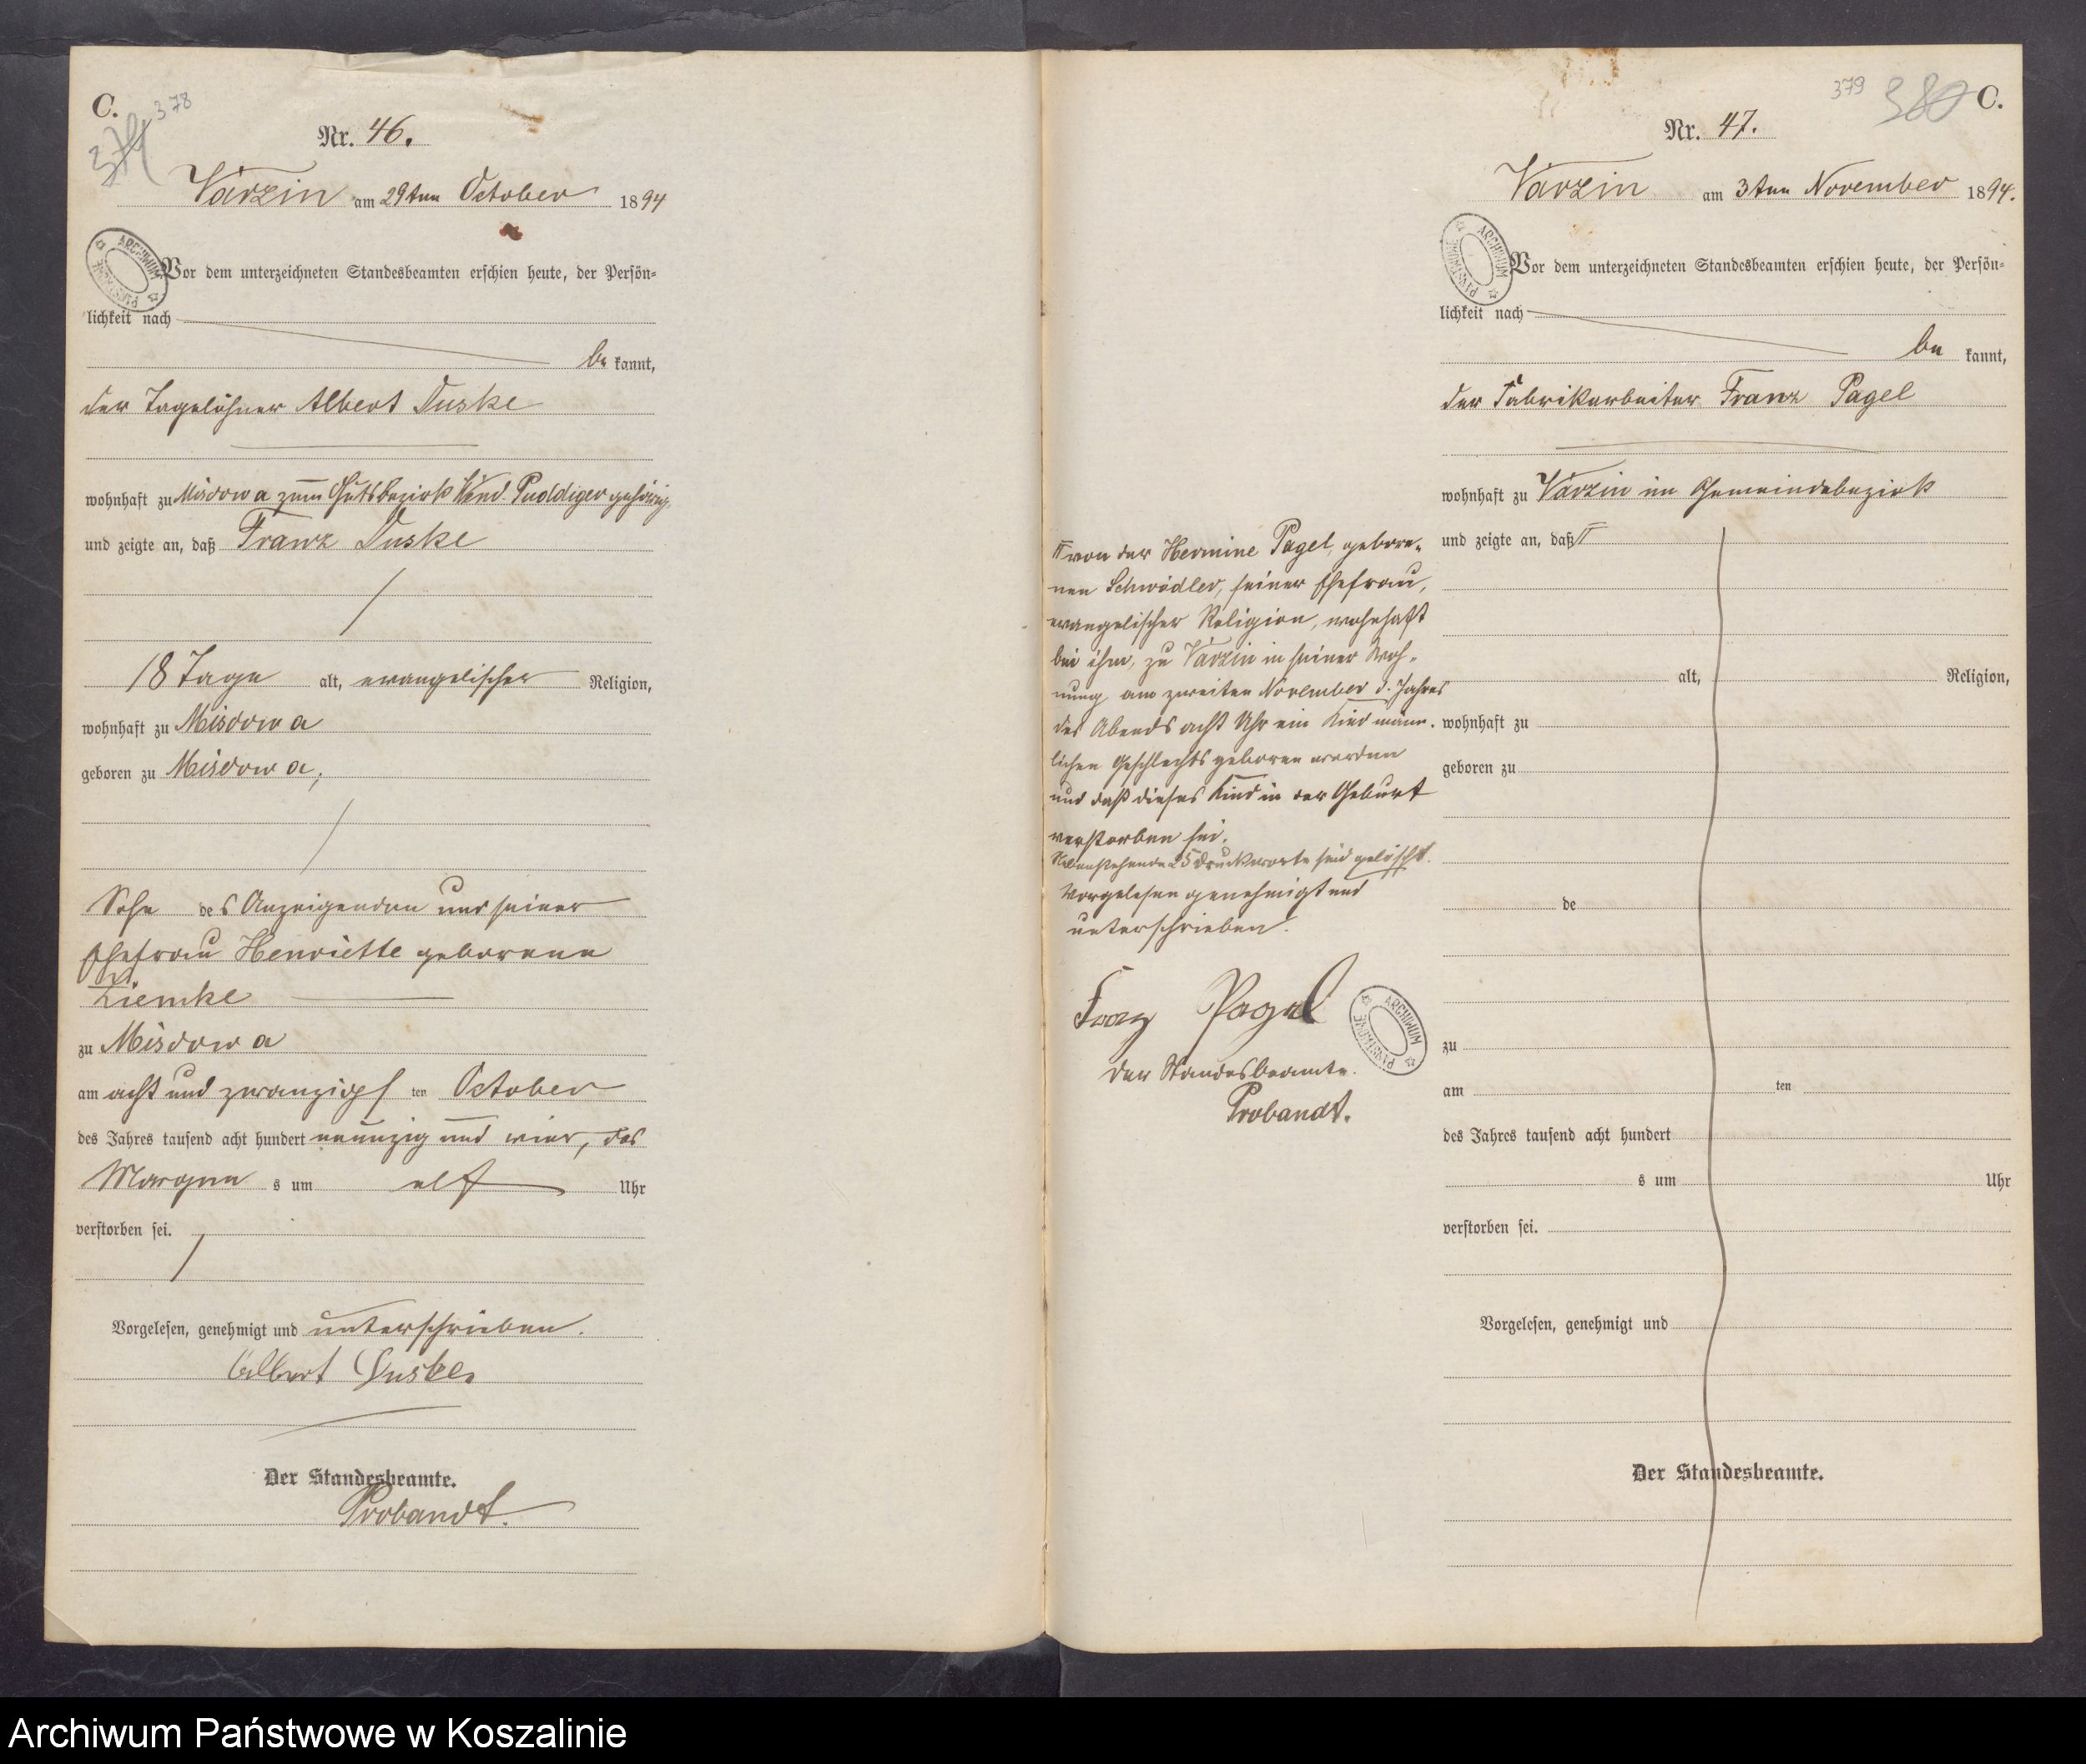 C.
378
379
Nr. 46.
Varzin am 29ten October 1894
ARCHIWUM PAŃSTWOWE
Vor dem unterzeichneten Standesbeamten erschien heute, der Persön=
lichkeit nach
be kannt,
der Tagelöhner Albert Duske
wohnhaft zu Misdow a zum Gutsbezirk Wend. Puddiger gehörig,
und zeigte an, daß Franz Duske
18 Tage alt, evangelischer Religion,
wohnhaft zu Misdow a
geboren zu Misdow a,
Sohn des Anzeigenden und seiner
Ehefrau Henriette geborene
Ziemke
zu Misdow a
am acht und zwanzigs ten October
des Jahres tausend acht hundert neunzig und vier, des
Morgen s um elf Uhr
verstorben sei.
Vorgelesen, genehmigt und unterschrieben.
Albert Duske
Der Standesbeamte.
Probandt.
379 380 C.
Nr. 47.
Varzin am 3ten November 1894.
ARCHIWUM PAŃSTWOWE
Vor dem unterzeichneten Standesbeamten erschien heute, der Persön=
lichkeit nach
be kannt,
der Fabrikarbeiter Franz Pagel
wohnhaft zu Varzin im Gemeindebezirk
und zeigte an, daß
alt, Religion,
wohnhaft zu
geboren zu
de
zu
am ten
des Jahres tausend acht hundert
s um Uhr
verstorben sei.
Vorgelesen, genehmigt und
Der Standesbeamte.
von der Hermine Pagel, gebore-
nen Schwödler, seiner Ehefrau,
evangelischer Religion, wohnhaft
bei ihm, zu Varzin in seiner Woh-
nung am zweiten November d. Jahres
des Abends acht Uhr ein Kind männ-
lichen Geschlechts geboren worden
und daß dieses Kind in der Geburt
verstorben sei.
Nebenstehende 25 Druckworte sind gelöscht.
Vorgelesen genehmigt und
unterschrieben.
Franz Pagel
ARCHIWUM PAŃSTWOWE
Der Standesbeamte.
Probandt.
Archiwum Państwowe w Koszalinie